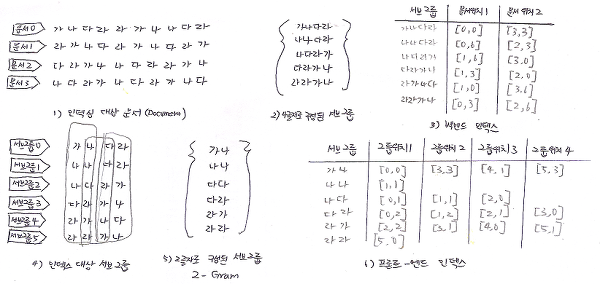 문서0 가 나 다 라 가 나 나 다 라
문서1 라 가 나 다 라 가 나 다 라 가
문서2 다 라 가 나 나 다 라 라 가 나
문서3 나 다 라 가 나 다 라 가 나 다
1) 인덱싱 대상 문서 (Document)
가나다라
나나다라
나다라가
다라가나
라라가나
2) 4글자로 구성된 서브그룹
서브그룹 문서위치1 문서위치2
가나다라 [0,0] [3,3]
나나다라 [0,6] [2,3]
나다라가 [1,6] [3,0]
다라가나 [1,3] [2,0]
라가나다 [1,0] [3,6]
라라가나 [0,3] [2,6]
3) 백엔드 인덱스
서브그룹0 가 나 다 라
서브그룹1 나 나 다 라
서브그룹2 나 다 라 가
서브그룹3 다 라 가 나
서브그룹4 라 가 나 다
서브그룹5 라 라 가 나
4) 인덱스 대상 서브그룹
가 나
나 나
다 다
다 라
라 가
라 라
5) 2글자로 구성된 서브그룹
2-Gram
서브그룹 그룹위치1 그룹위치2 그룹위치3 그룹위치4
가 나 [0,0] [3,3] [4,1] [5,3]
나 나 [1,1]
나 다 [0,1] [1,1] [2,0]
다 라 [0,2] [1,2] [2,1] [3,0]
라 가 [2,2] [3,1] [4,0] [5,1]
라 라 [5,0]
6) 프론트-엔드 인덱스